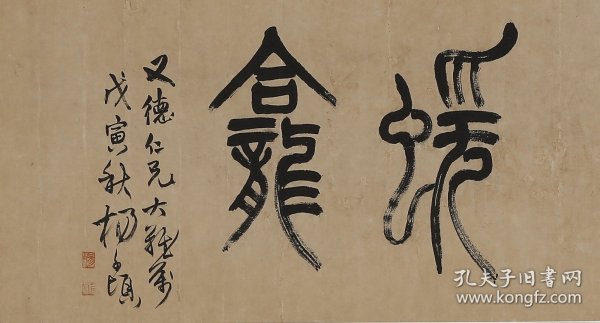 蝯龕
又德仁兄大雅屬
戊寅秋楊
孔夫子旧书网
www.kongfz.com